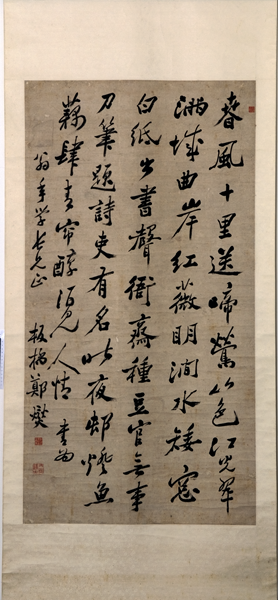 春風十里送啼鶯山色江光翠
滿城曲岸紅薇明澗水矮窗
白紙出書聲衙齋種豆官無事
刀筆題詩吏有名夜邨燈魚
藕肆青帘酒見人情 書為
年學兄正 板橋鄭燮